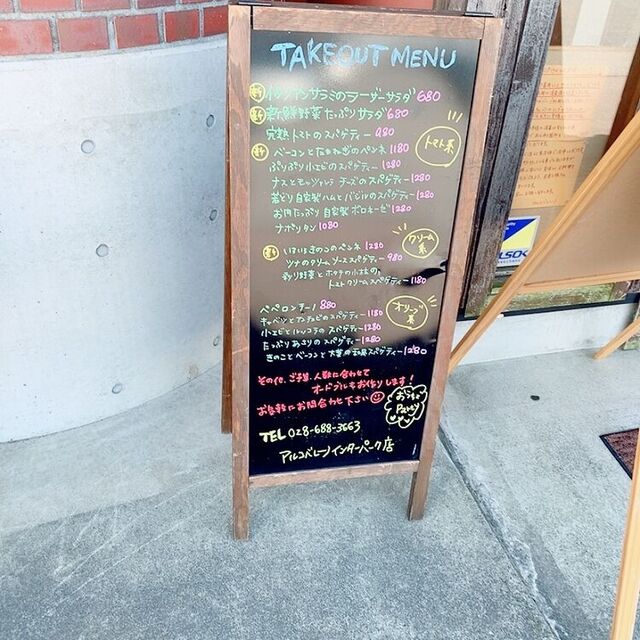 TAKEOUT MENU
新 サラミのシーザーサラダ 680
新 新鮮野菜たっぷりサラダ 680
完熟トマトのスパゲティー 980
トマト系
新 ベーコンとたまねぎのペンネ 1180
ぷりぷり小エビのスパゲティー 1280
ナスとモッツァレラチーズのスパゲティー 1280
若どり自家製ハムとバジルのスパゲティー 1280
お肉たっぷり自家製ボロネーゼ 1280
ナポリタン 1080
クリーム系
新 いろいろきのこのペンネ 1280
ツナのクリームソーススパゲティー 980
彩り野菜とホタテの小柱の
トマトクリームスパゲティー 1180
ペペロンチーノ 880
オリーブ系
キャベツとアンチョビのスパゲティー 1180
小エビとルッコラのスパゲティー 1280
たっぷりあさりのスパゲティー 1280
きのことベーコンと大葉の和風スパゲティー 1280
その他、ご予算、人数に合わせて
オードブルもお作りします!
お気軽にお問合わせ下さい
おうちで Party
TEL 028-688-3663
アルコバレーノインターパーク店
ALSOK